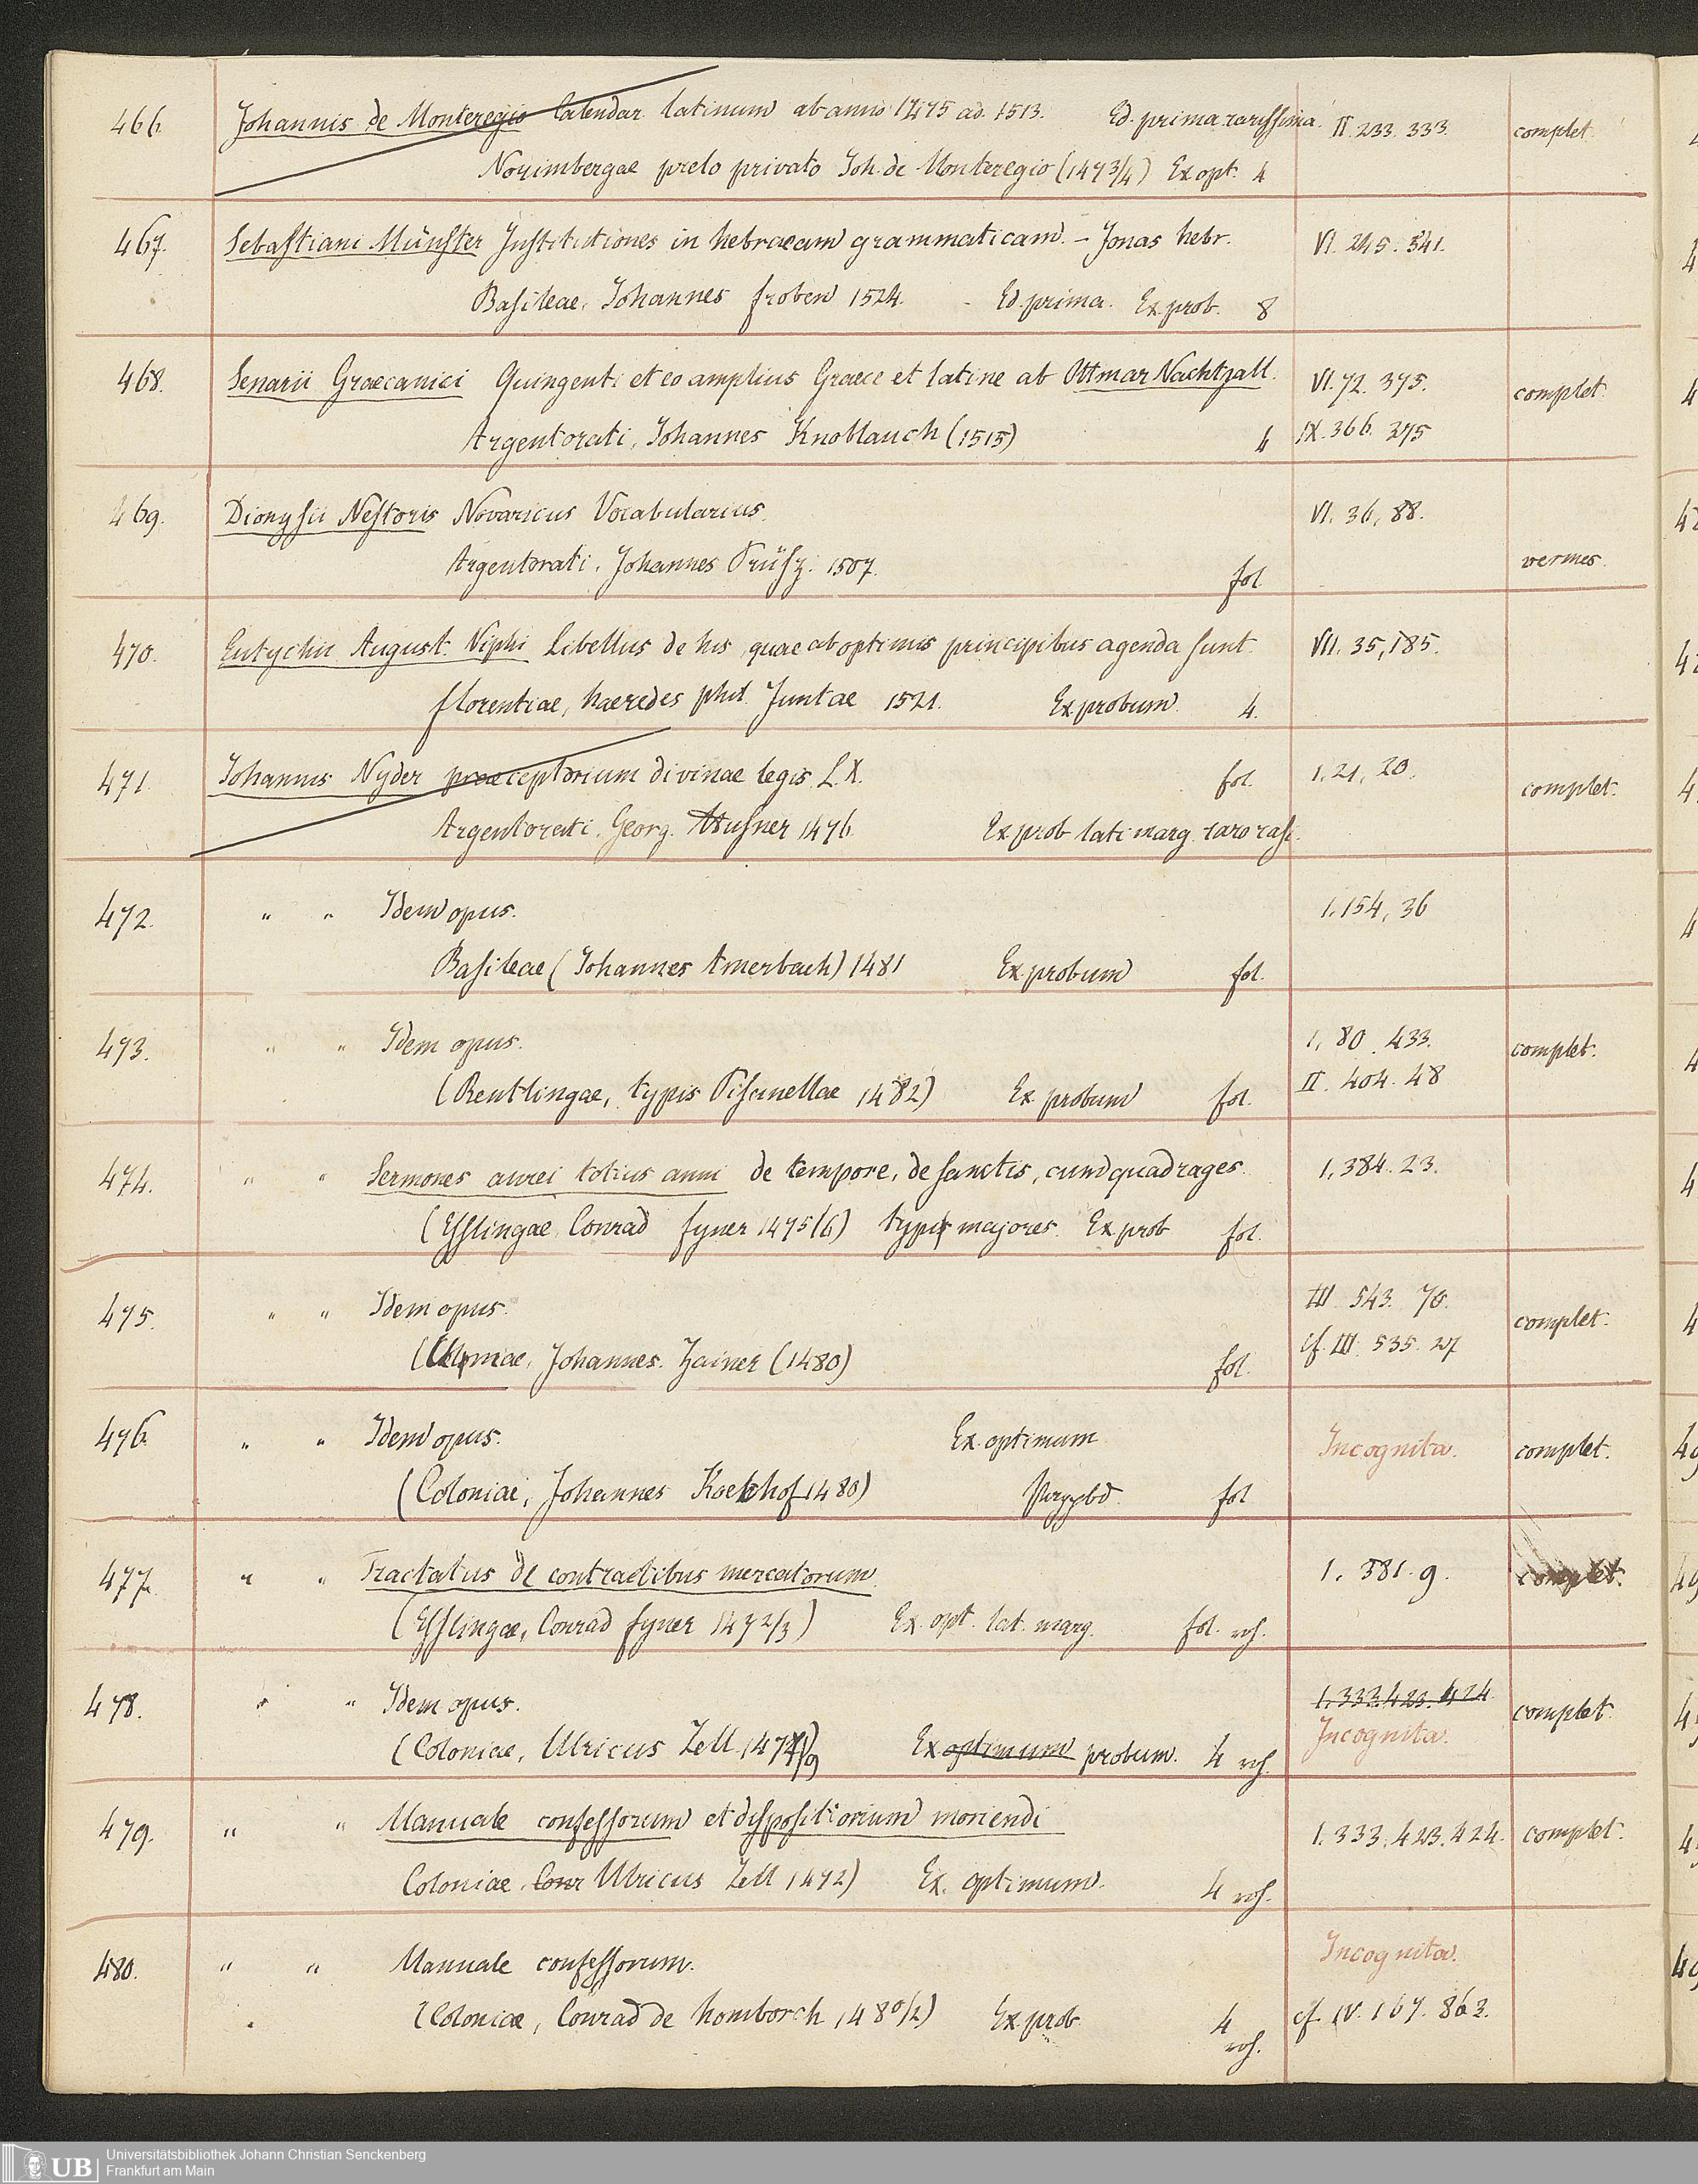 466. Johannis de Monteregio Calendar latinum ab anno 1475 ad. 1513. Ed. prima rarissima. II. 233. 333. complet.
Norimbergae prelo privato Joh. de Monteregio (1473/4) Ex opt. 4
467. Sebastiani Münster Institutiones in hebraeam grammaticam. – Jonas hebr. VI. 245. 341.
Basileae, Johannes Froben 1524. - Ed. prima. Ex. prob. 8
468. Senarii Graecanici Quingenti et eo amplius Graece et latine ab Ottmar Nachtgall. VI. 72. 375. complet.
Argentorati, Johannes Knoblauch (1515) 4 IX. 366. 275
469. Dionysii Nestoris Novaricus Vocabularius. VI. 36, 88.
Argentorati. Johannes Prüsz. 1507. fol. vermes.
470. Eutychii August. Niphi Libellus de his quae ab optimis principibus agenda sunt. VII. 35, 185.
Florentiae, haeredes phil. Juntae 1521. Ex probum. 4.
471. Johannis Nyder praeceptorium divinae legis L. X. fol. 1. 21, 20. complet.
Argentorati. Georg. Husner 1476. Ex prob lati marg. raro rasi.
472. " " Idem opus. 1. 154, 36
Basileae (Johannes Amerbach) 1481 Ex. probum fol.
473. " " Idem opus. 1, 80. 433. complet.
(Reutlingae, typis Pisanellae 1482) Ex probum fol. II. 404. 48
474. " " Sermones aurei totius anni de tempore, de sanctis, cum quadrages. 1, 384. 23.
(Esslingae, Conrad Fyner 1475/6) typis majores. Ex prob fol.
475. " " Idem opus. III. 543. 70. complet.
Johannes Zainer (1480) fol. cf. III. 535. 27
476. " " Idem opus. Ex. optimum Incognita. complet.
(Coloniae, Johannes Koelhof 1480) fol
477. " " Tractatus de contractibus mercatorum. 1. 381. 9. complet.
(Esslingae, Conrad Fyner 1472/3) Ex. opt. lat. marg. fol. roh.
478. " " Idem opus. 1. 333. 423. 424. complet.
(Coloniae, Ulricus Zell. Ex optimum probum. 4 roh. Incognita.
479. " " Manuale confessorum et dispositorium moriendi 1. 333. 423. 424. complet.
Coloniae. Conr Ulricus Zell 1472) Ex. optimum. 4 roh.
480. " " Manuale confessorum. Incognita.
(Coloniae, Conrad de homborch 1480/2) Ex. prob. 4 roh. cf. IV. 167. 863.
UB Universitätsbibliothek Johann Christian Senckenberg
Frankfurt am Main